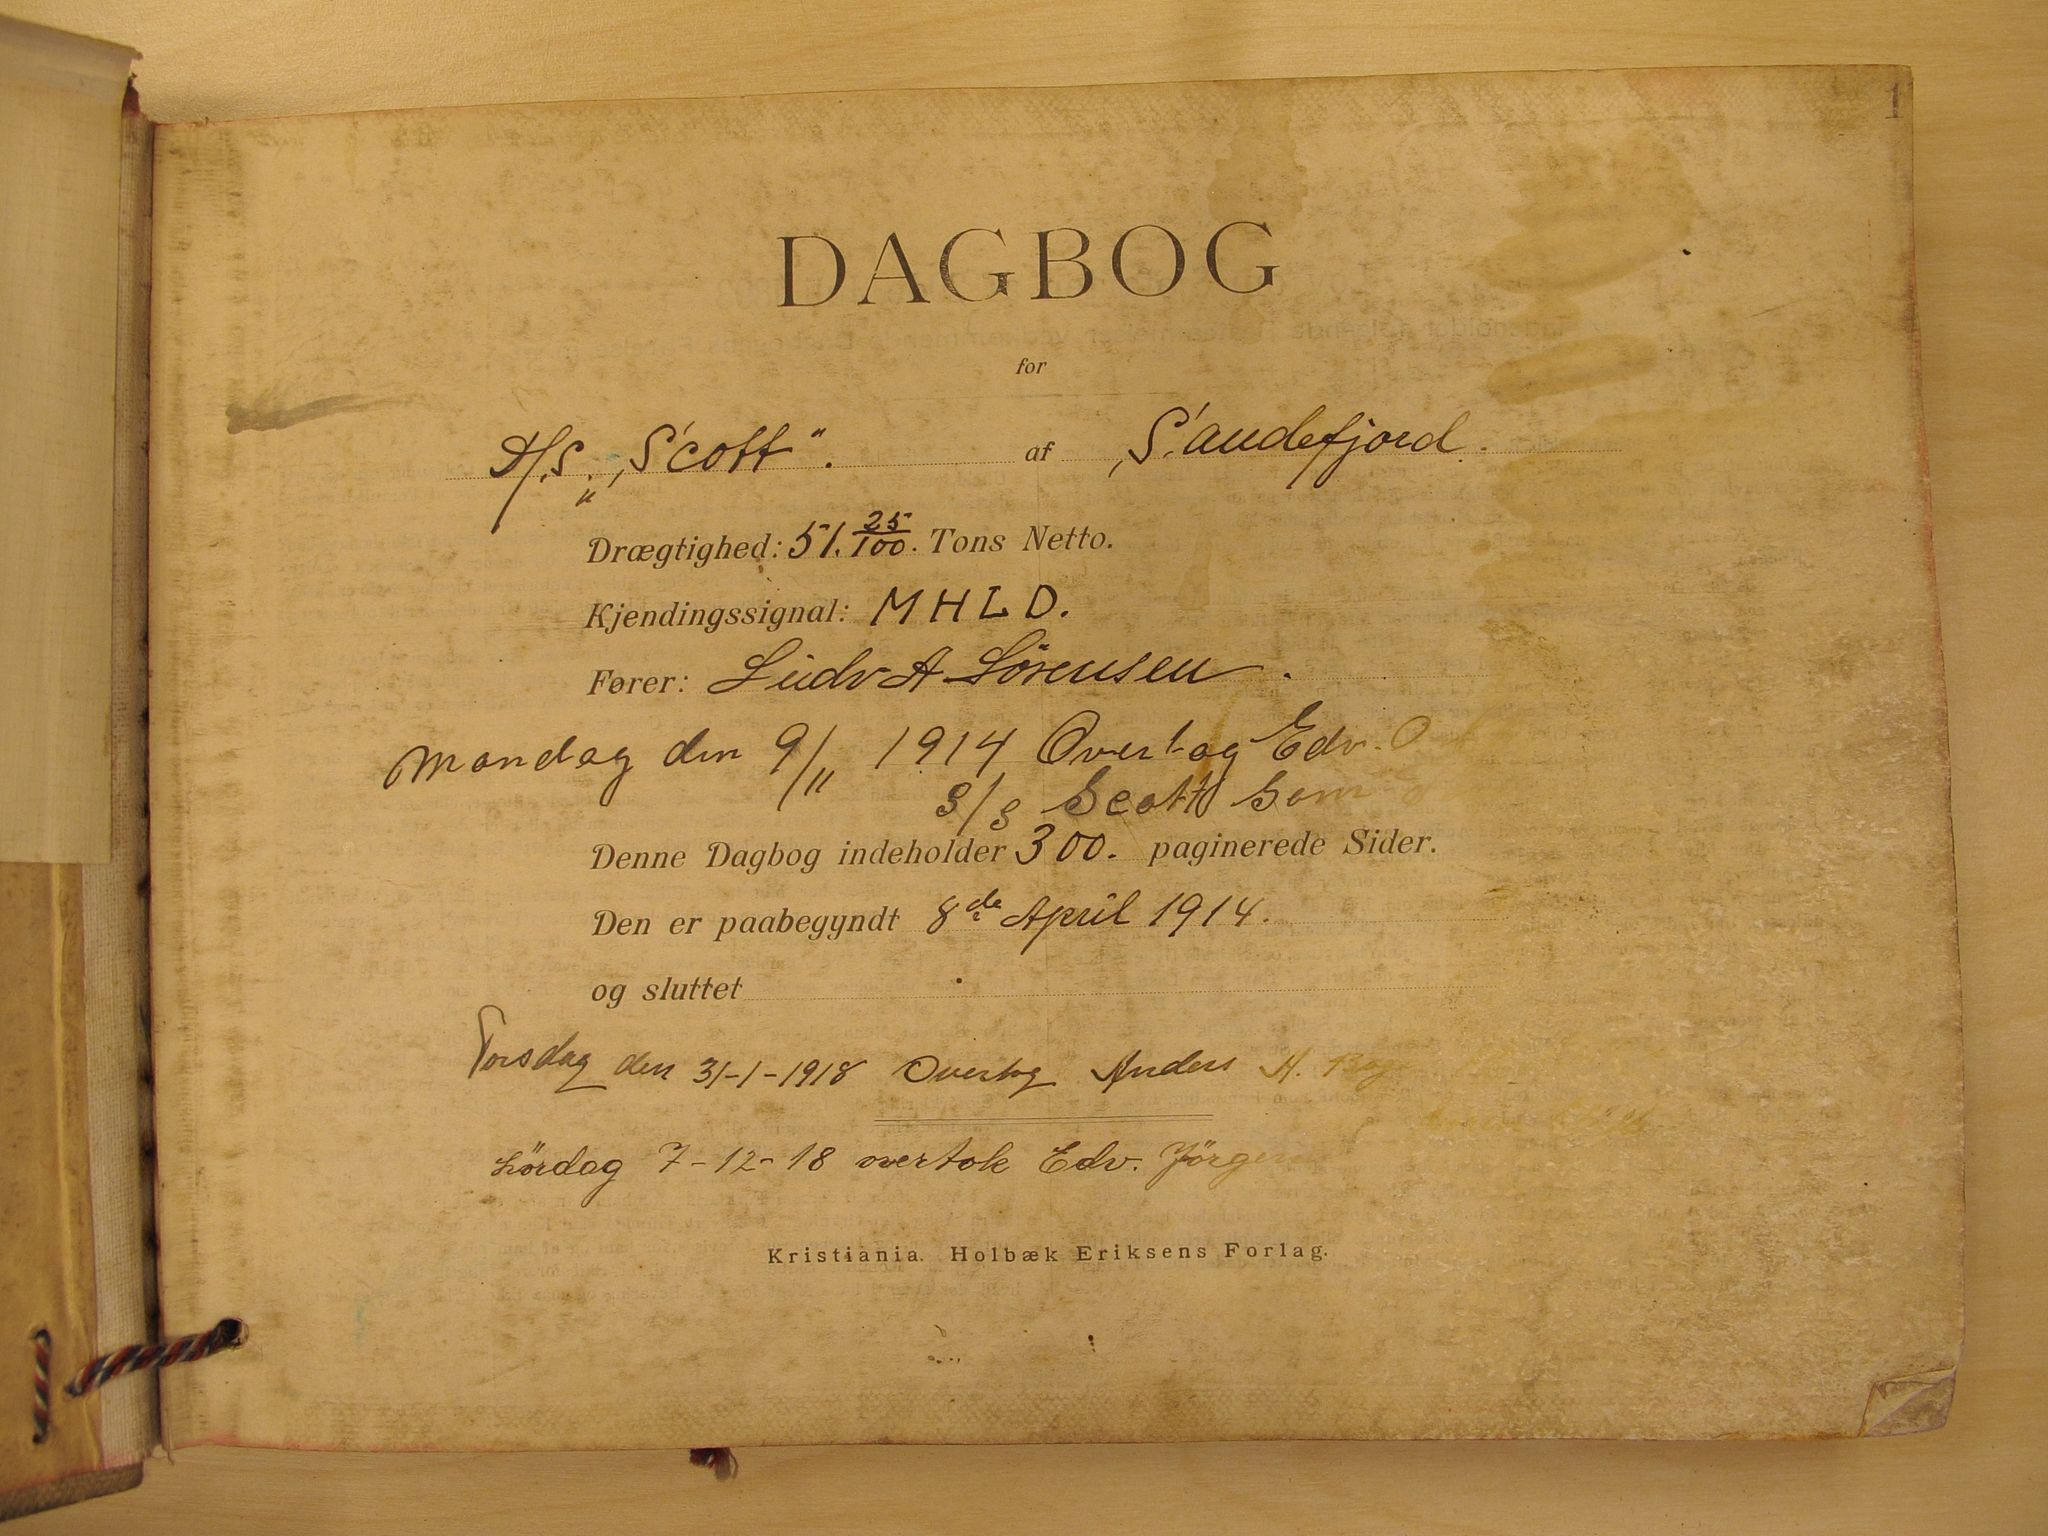 1
DAGBOG
for
D/S. „Scott“. af Sandefjord.
Drægtighed: 51. 25/100. Tons Netto.
Kjendingssignal: M H L D.
Fører: Ludv A Sörensen.
Mandag den 9/11 1914 Overtog Edv.
S/S Scott Som
Denne Dagbog indeholder 300. paginerede Sider.
Den er paabegyndt 8de April 1914.
og sluttet
Torsdag den 31-1-1918 Overtog Anders A.
Lördag 7-12-18 overtok Edv.
Kristiania. Holbæk Eriksens Forlag.